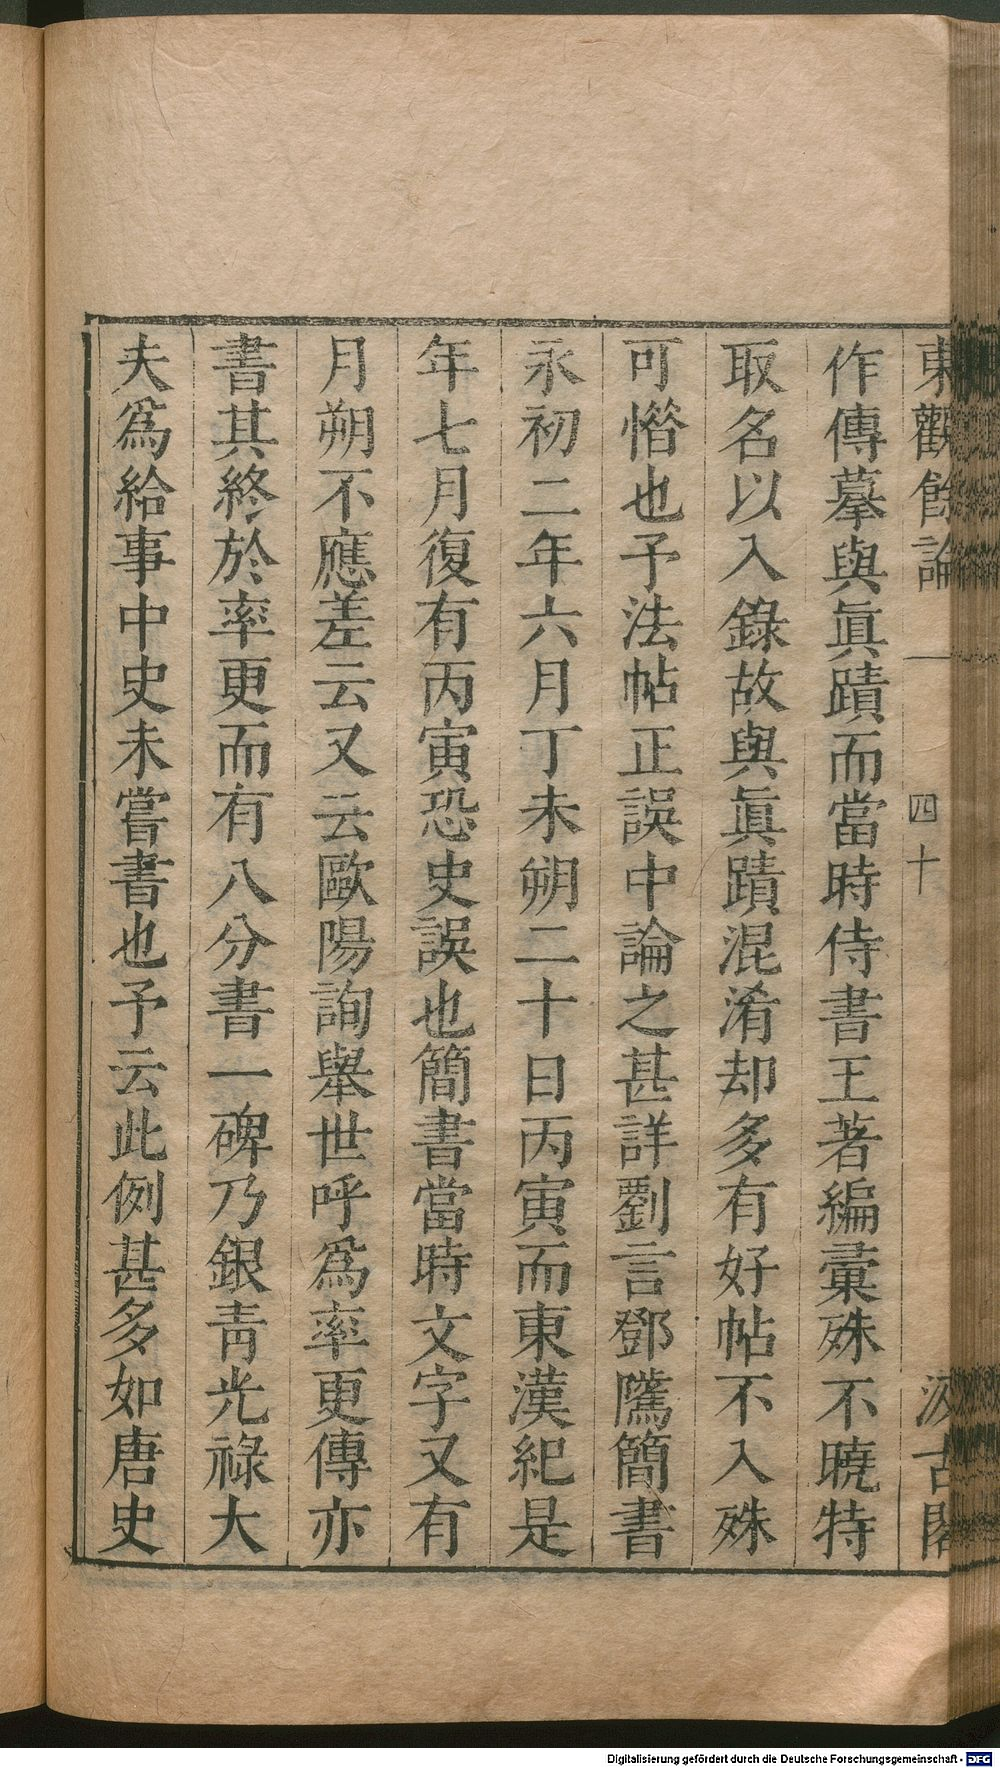 東觀餘論 一 四十 汲古閣
作傳摹與眞蹟而當時侍書王著編彙殊不曉特
取名以入錄故與眞蹟混淆却多有好帖不入殊
可憯也予法帖正誤中論之甚詳劉言鄧隲簡書
永初二年六月丁未朔二十日丙寅而東漢紀是
年七月復有丙寅恐史誤也簡書當時文字又有
月朔不應差云又云歐陽詢舉世呼爲率更傳亦
書其終於率更而有八分書一碑乃銀靑光祿大
夫爲給事中史未嘗書也予云此例甚多如唐史
Digitalisierung gefördert durch die Deutsche Forschungsgemeinschaft - DFG